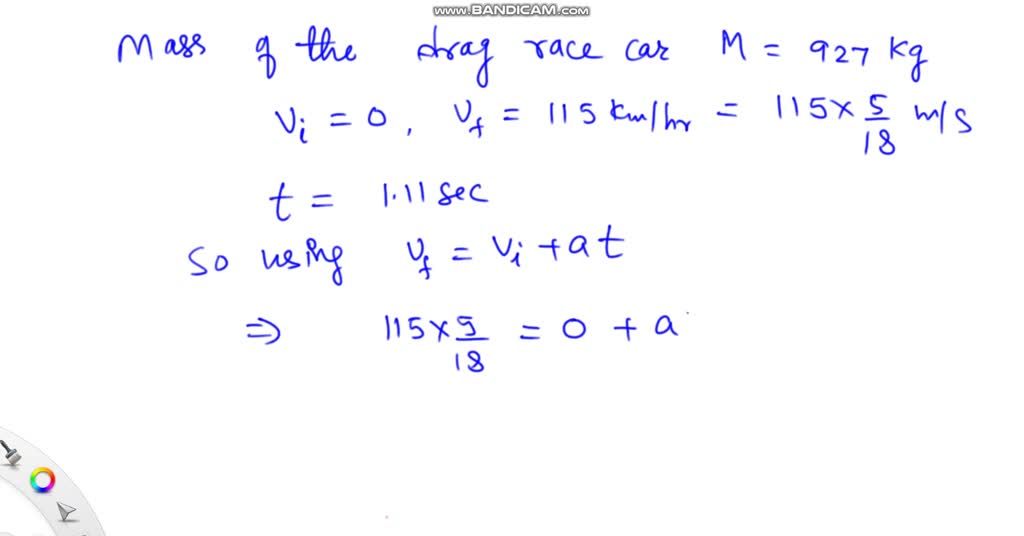 www.BANDICAM.com
Mass of the drag race car M = 927 kg
Vi = 0, Vf = 115 km/hr = 115 × 5/18 m/s
t = 1.11 sec
So using Vf = Vi + at
⇒ 115 × 5/18 = 0 + a